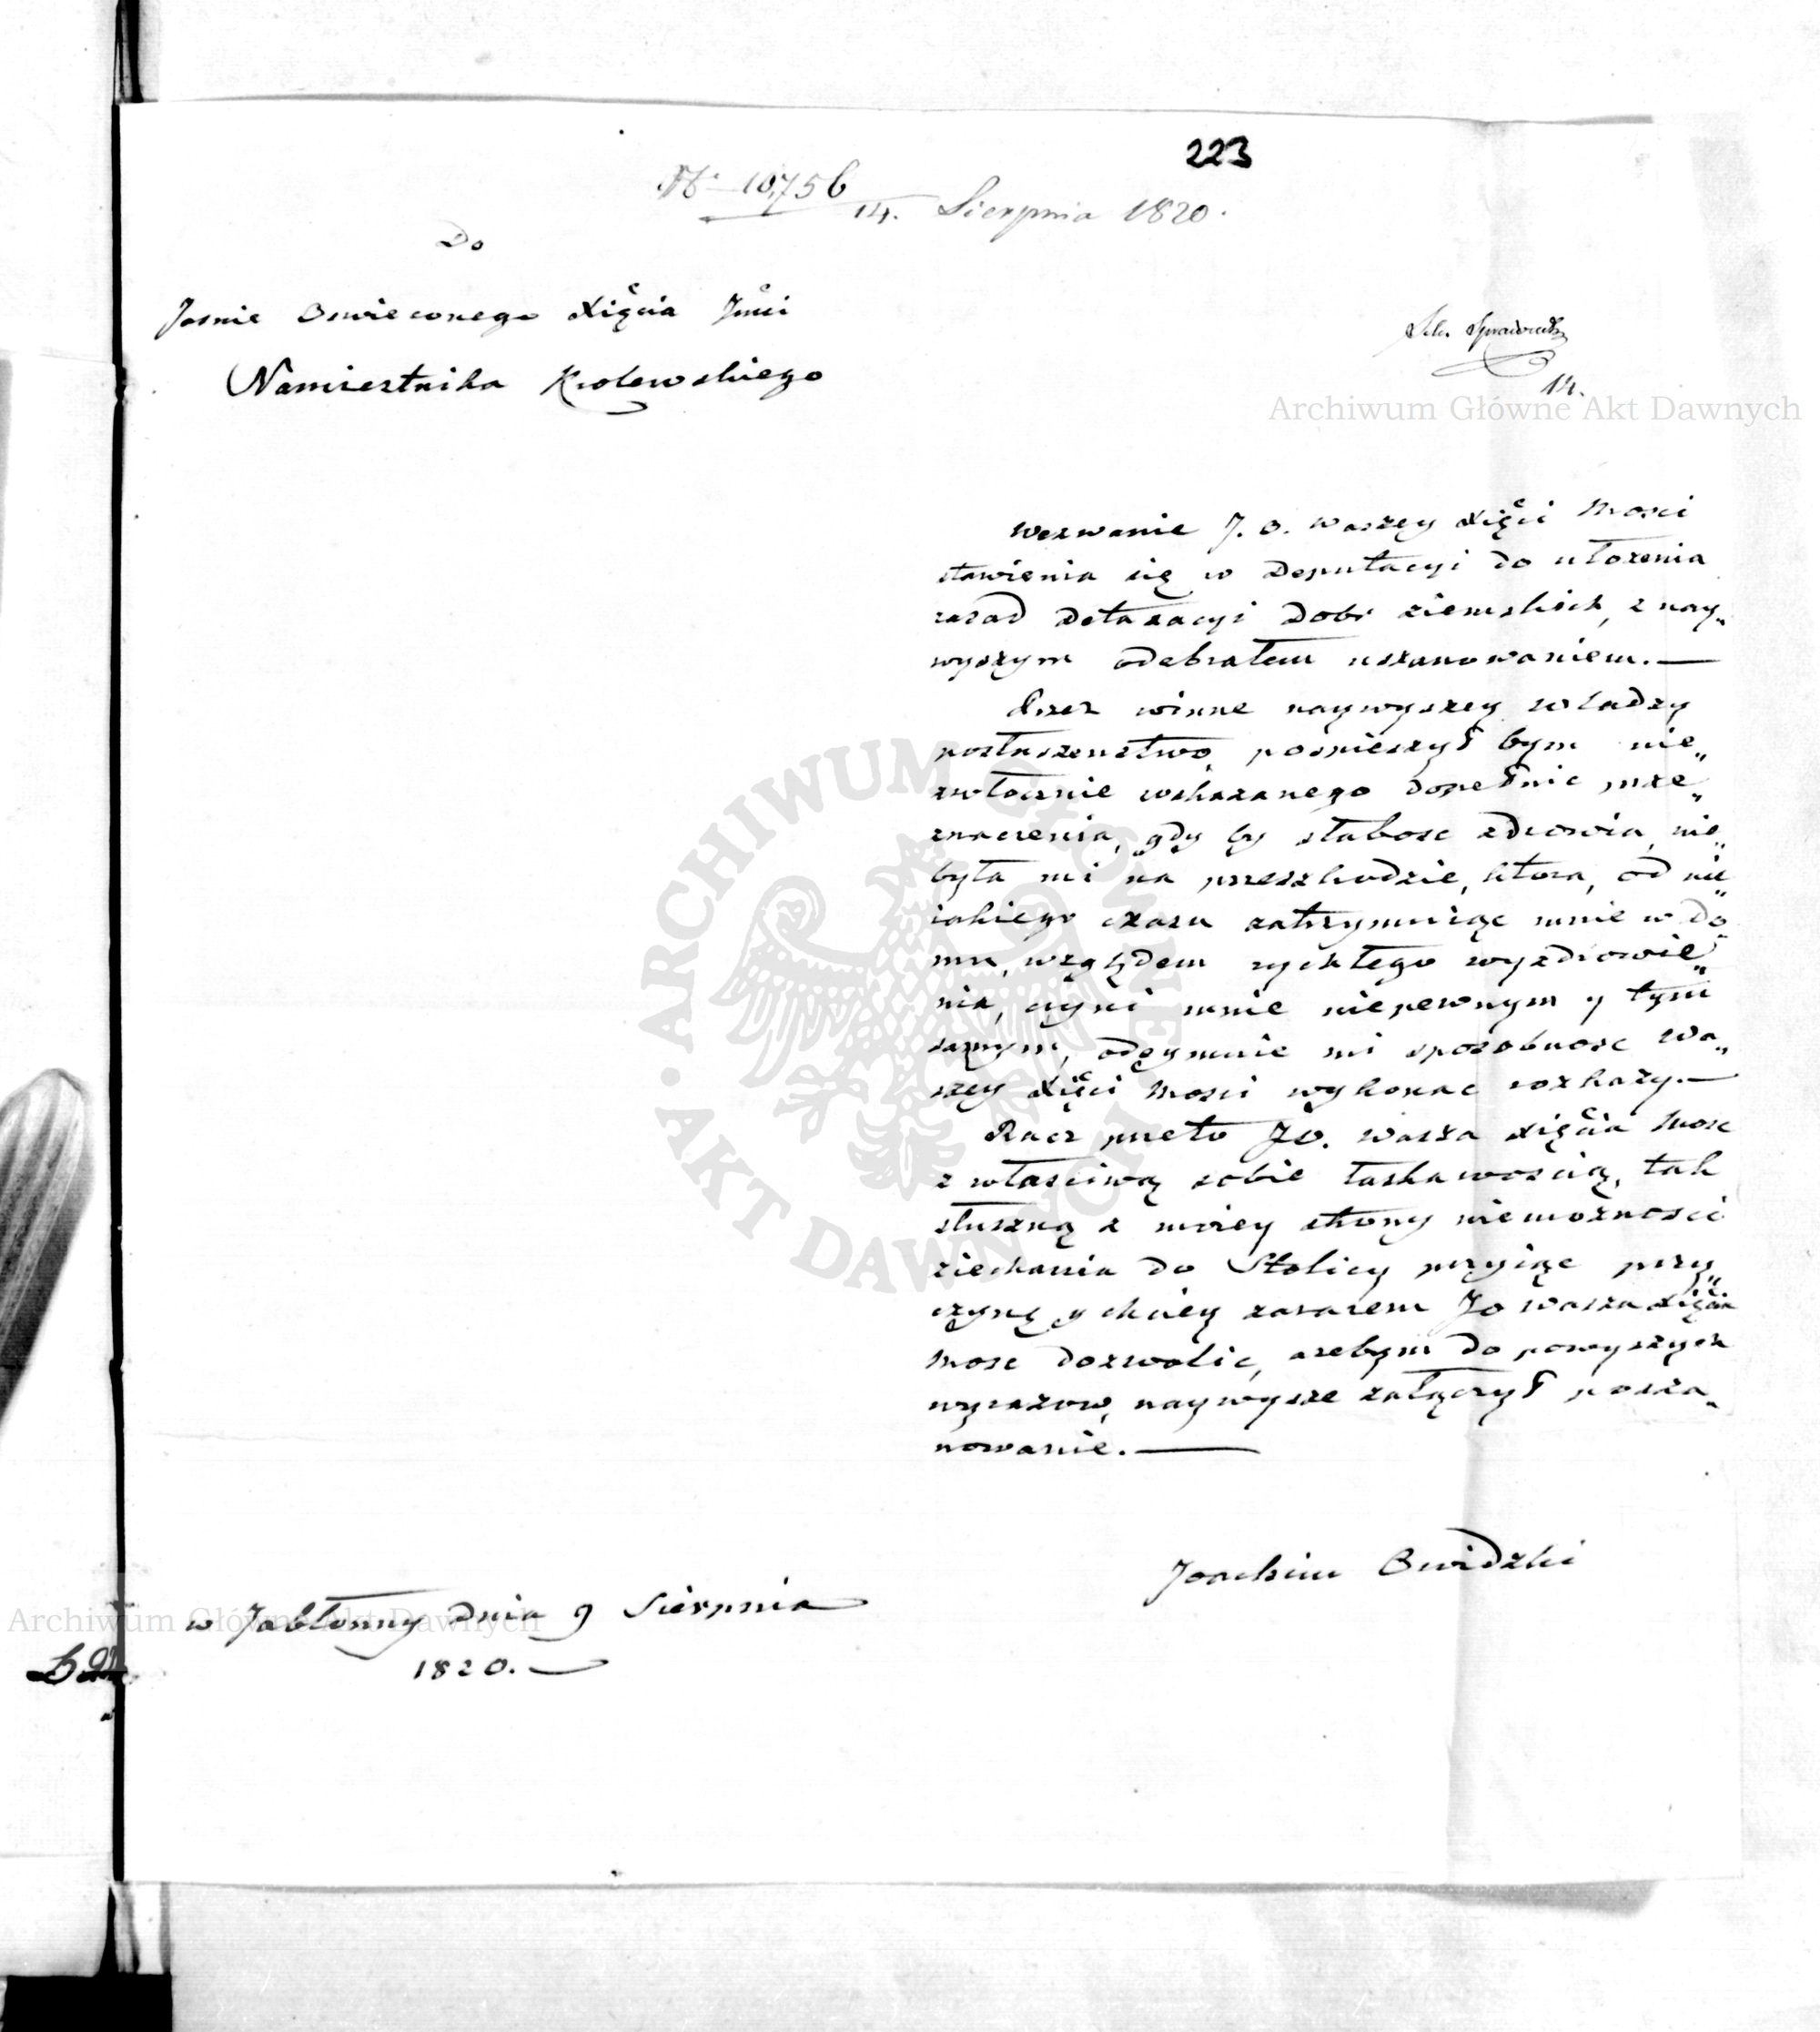 223
No 10756
14. Sierpnia 1820.
Do
Jasnie Oswieconego Xięcia Jmci
Namiestnika Krolewskiego
14.
Archiwum Główne Akt Dawnych
Wezwanie J. O. Waszey Xięci Mosci
stawienia się w Deputacyi do ułozenia
zasad Detaxacyi Dobr ziemskich, z nay„
wyszym odebrałem uszanowaniem.—
Przez winne naywyszey władzy
posłuszenstwo, pospieszył bym nie„
zwłocznie wskazanego dopełnic prze„
znaczenia, gdy by słabosc zdrowia, nie„
była mi na przeszkodzie, ktora, od nie„
iakiego czasu zatrzymuiąc mnie w do„
mu, względem rychłego wyzdrowie„
nia, czyni mnie niepewnym y tym
samym, odeymuie mi sposobnosc Wa„
szey Xięci Mosci wykonac rozkazy.—
Racz przeto JO. Wasza Xięcia Mosc
z własciwą sobie łaskawoscią, tak
słuszną z moiey strony niemoznosci
ziechania do Stolicy przyiąc przy„
czynę y chciey zarazem JO Wasza Xięcia
Mosc dozwolic, azebym do powyszych
wyrazow, naywysze załączył posza„
nowanie.—
Joachim Owidzki
w Jabłonny dnia 9 Sierpnia
1820.—
Archiwum Główne Akt Dawnych
ARCHIWUM GŁÓWNE • AKT DAWNYCH •